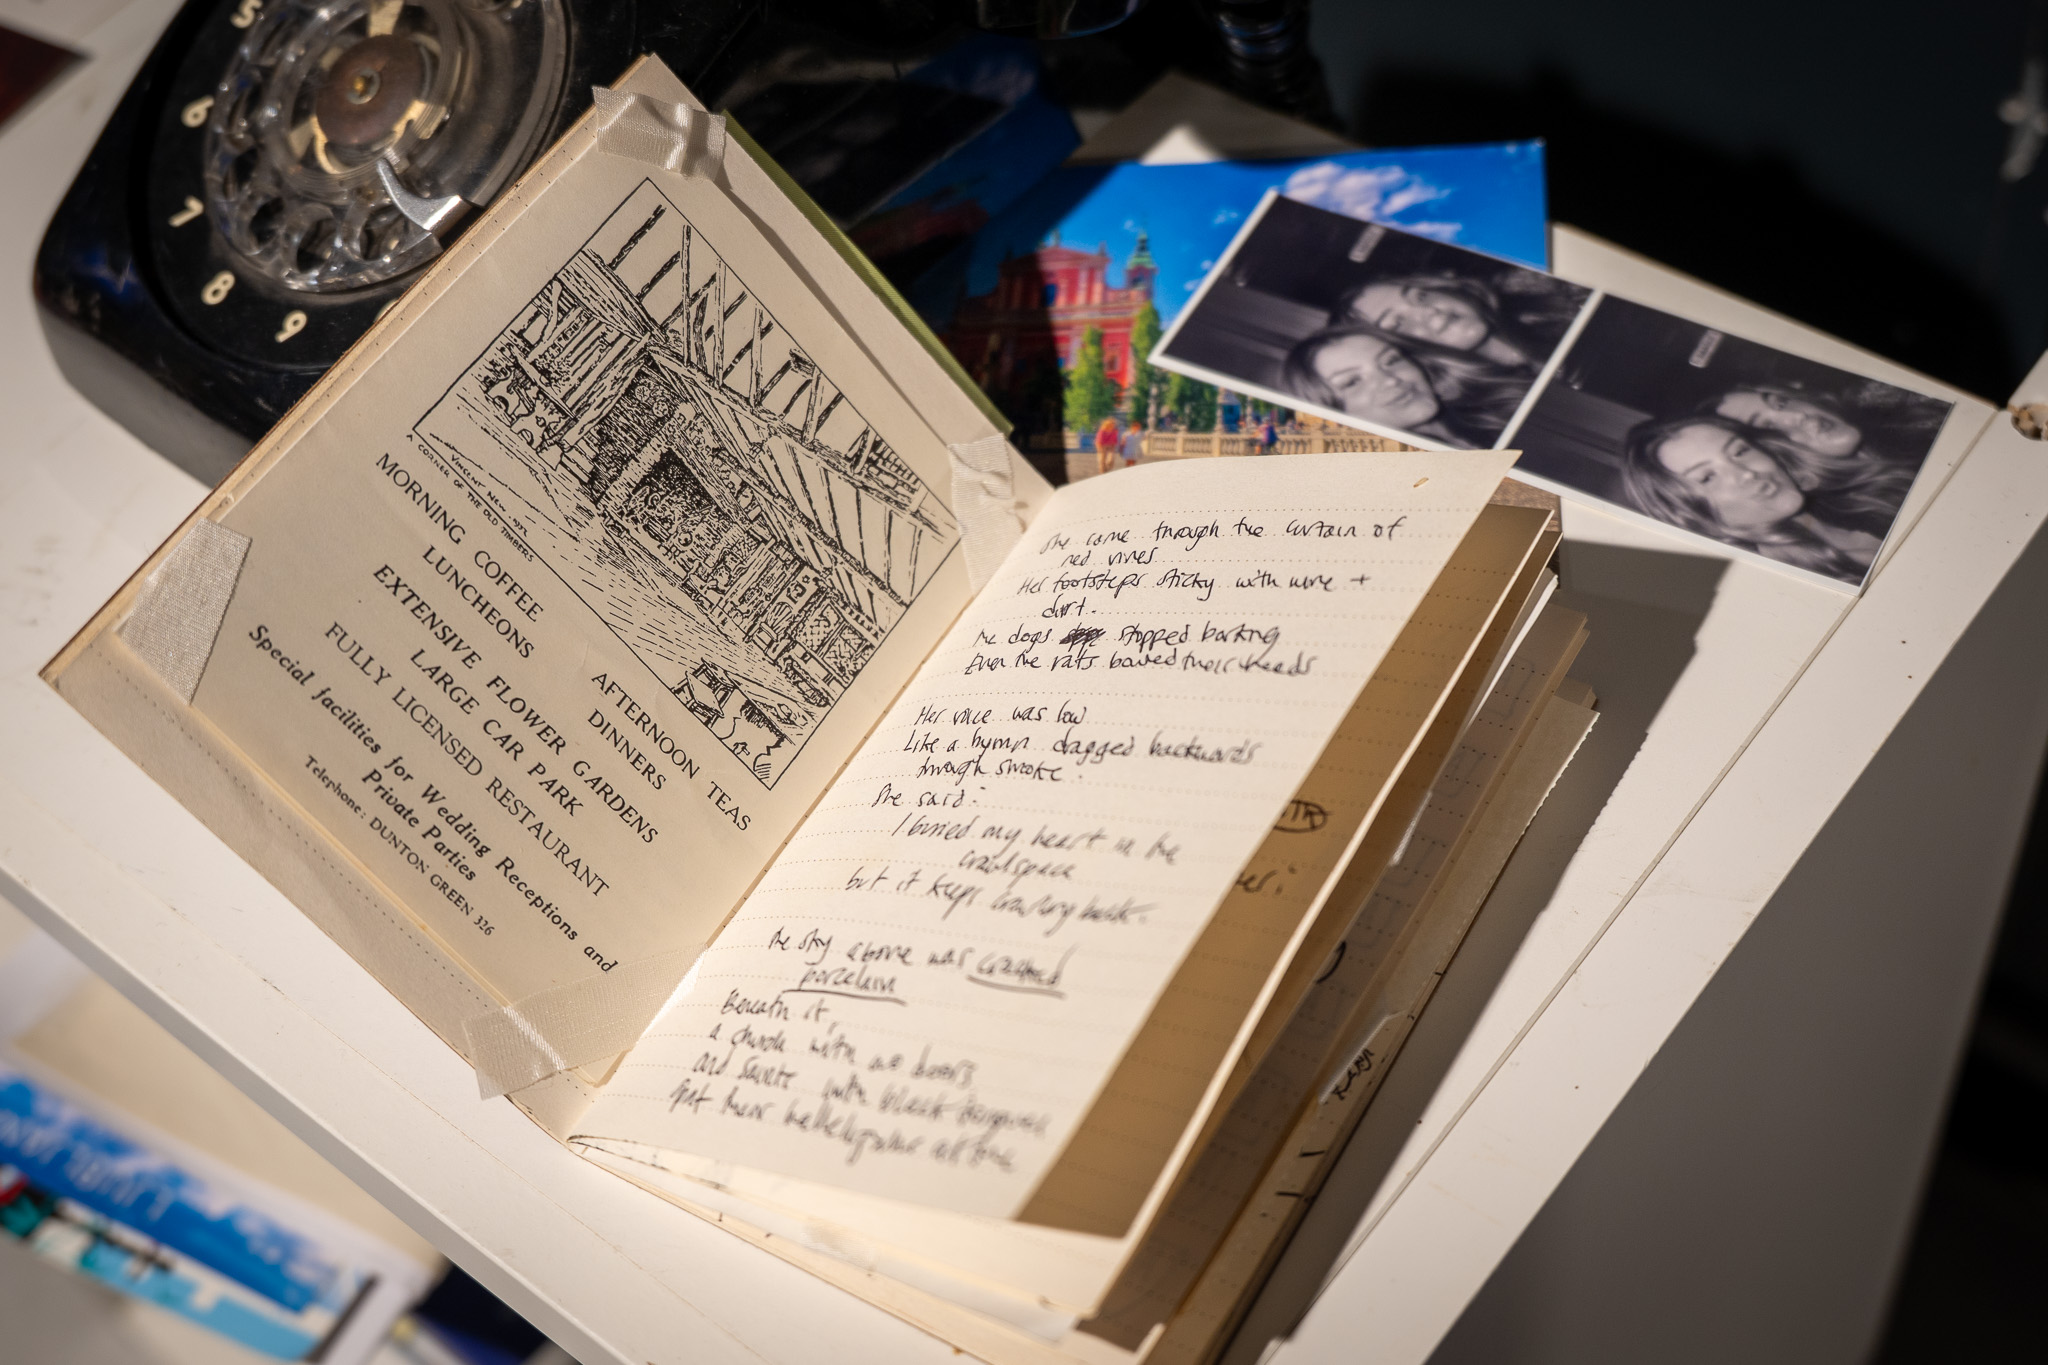 5
6
7
8
9
A CORNER OF THE OLD TIMBERS
MORNING COFFEE
LUNCHEONS
AFTERNOON TEAS
DINNERS
EXTENSIVE FLOWER GARDENS
LARGE CAR PARK
FULLY LICENSED RESTAURANT
Special facilities for Wedding Receptions and
Private Parties
Telephone: DUNTON GREEN 326
She came through the curtain of
red vines
Her footsteps sticky with wine +
dirt.
The dogs stopped barking
Even the rats bowed their heads
Her voice was low
Like a hymn dragged backwards
through smoke.
She said:
I buried my heart in the
crawlspace
but it keeps crawling back.
The sky above was cracked
porcelain
Beneath it,
a church with no doors
and saints with black